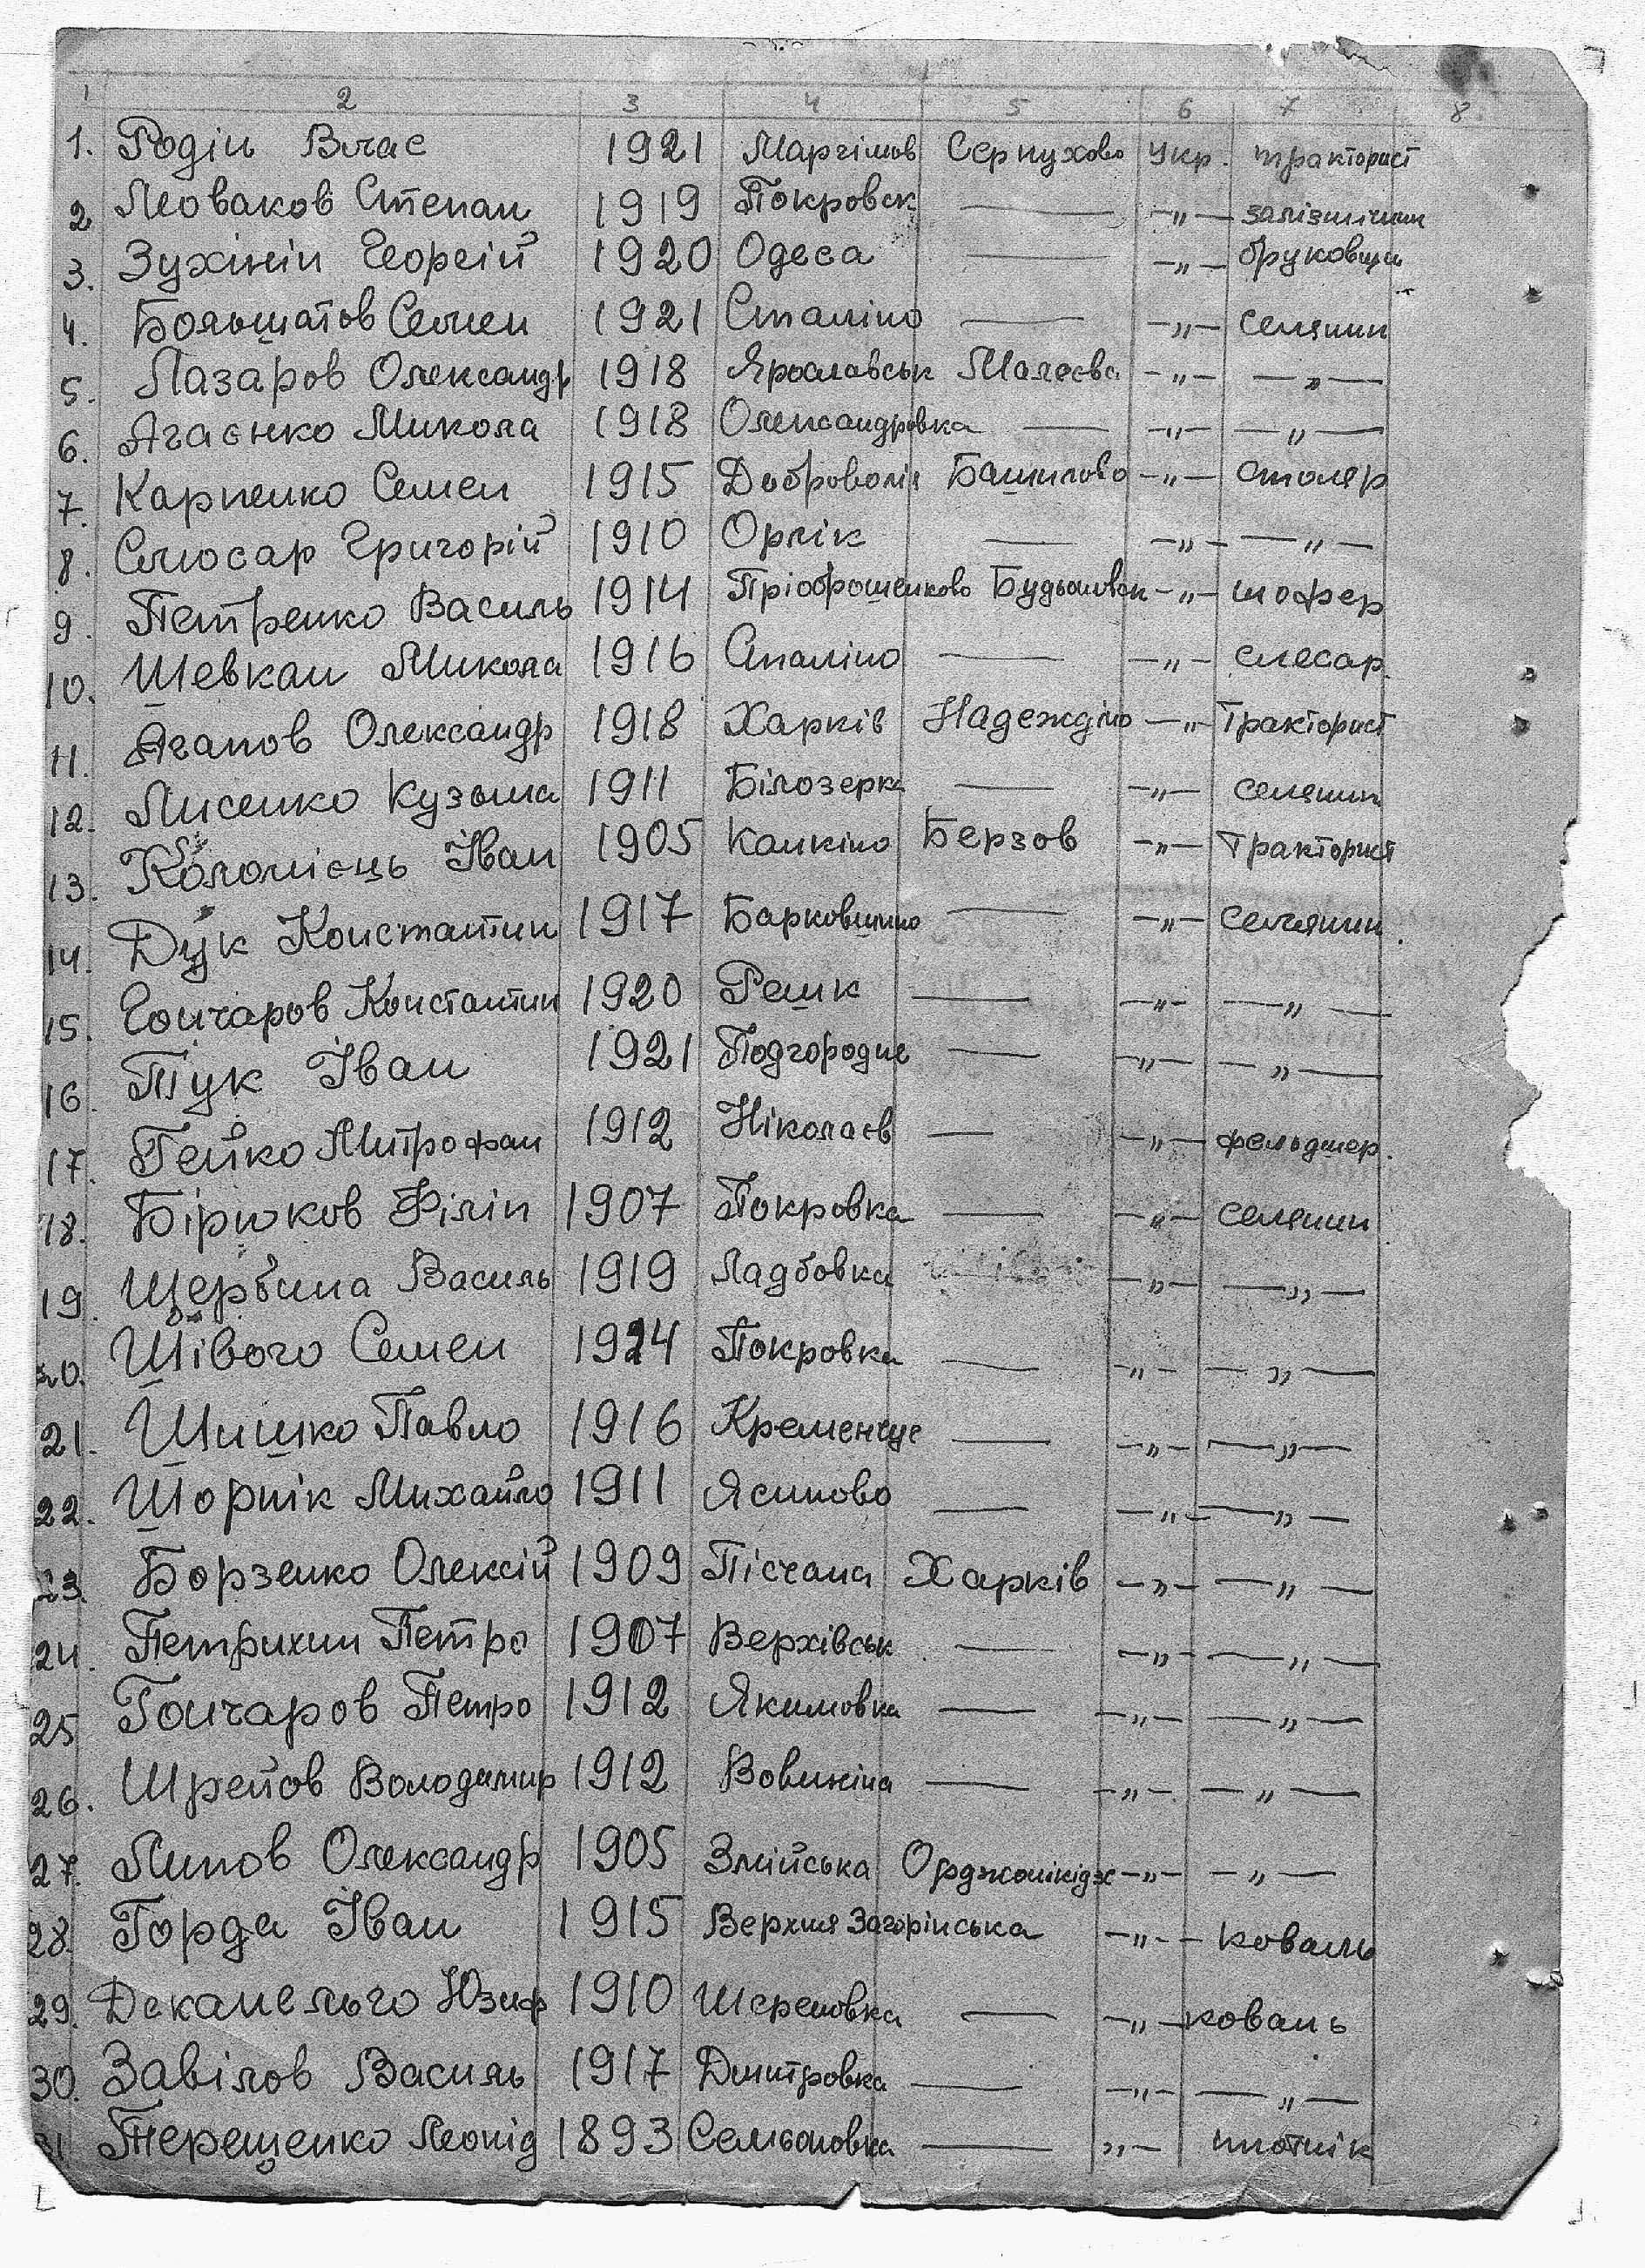 1 2 3 4 5 6 7 8
1. Родін Влас 1921 Маргімов Серпухово Укр. тракторист
2 Леоваков Степан 1919 Покровск — -„- залізничник
3. Зухінін Георгій 1920 Одеса — -„- бруковщик
4. Большатов Семен 1921 Сталіно — -„- селянин
5. Лазаров Олександр 1918 Ярославськ Малеєва -„- — „ —
6. Агаєнко Микола 1918 Олександровка — -„- — „ —
7. Карпенко Семен 1915 Доброволія Башилово -„- столяр
8. Слюсар Григорій 1910 Орлік — -„- — „ —
9. Петренко Василь 1914 Пріображенково Будьоновськ -„- шофер
10. Шевкан Микола 1916 Сталіно — -„- слесар.
11. Агапов Олександр 1918 Харків Надеждіно -„- Тракторист
12. Лисенко Кузьма 1911 Білозерка — -„- селянин
13. Коломієць Іван 1905 Канкіно Берзов -„- Тракторист
14. Дук Константин 1917 Барковшино — -„- селянин.
15. Гончаров Константин 1920 Решк — -„- — „ —
16. Тук Іван 1921 Подгородне — -„- — „ —
17. Гейко Митрофан 1912 Ніколаєв — -„- фельдшер.
18. Бірюков Філіп 1907 Покровка — -„- селянин
19. Щербина Василь 1919 Ладбовка — -„- — „ —
20. Шівого Семен 1924 Покровка — -„- — „ —
21. Шишко Павло 1916 Кременчуг — -„- — „ —
22. Шорнік Михайло 1911 Ясиново — -„- — „ —
23. Борзенко Олексій 1909 Пісчана Харків -„- — „ —
24. Петрихин Петро 1907 Верхівськ — -„- — „ —
25 Гончаров Петро 1912 Якимовка — -„- — „ —
26. Шрейов Володимир 1912 Вовикіна — -„- — „ —
27. Липов Олександр 1905 Змійська Орджонікідзе -„- — „ —
28. Горда Іван 1915 Верхня Загорінська -„- коваль
29. Деканельго Юзиф 1910 Шереповка — -„- коваль
30. Завілов Василь 1917 Дмитровка — -„- — „ —
31 Терещенко Леонід 1893 Сельоновка — „- плотнік